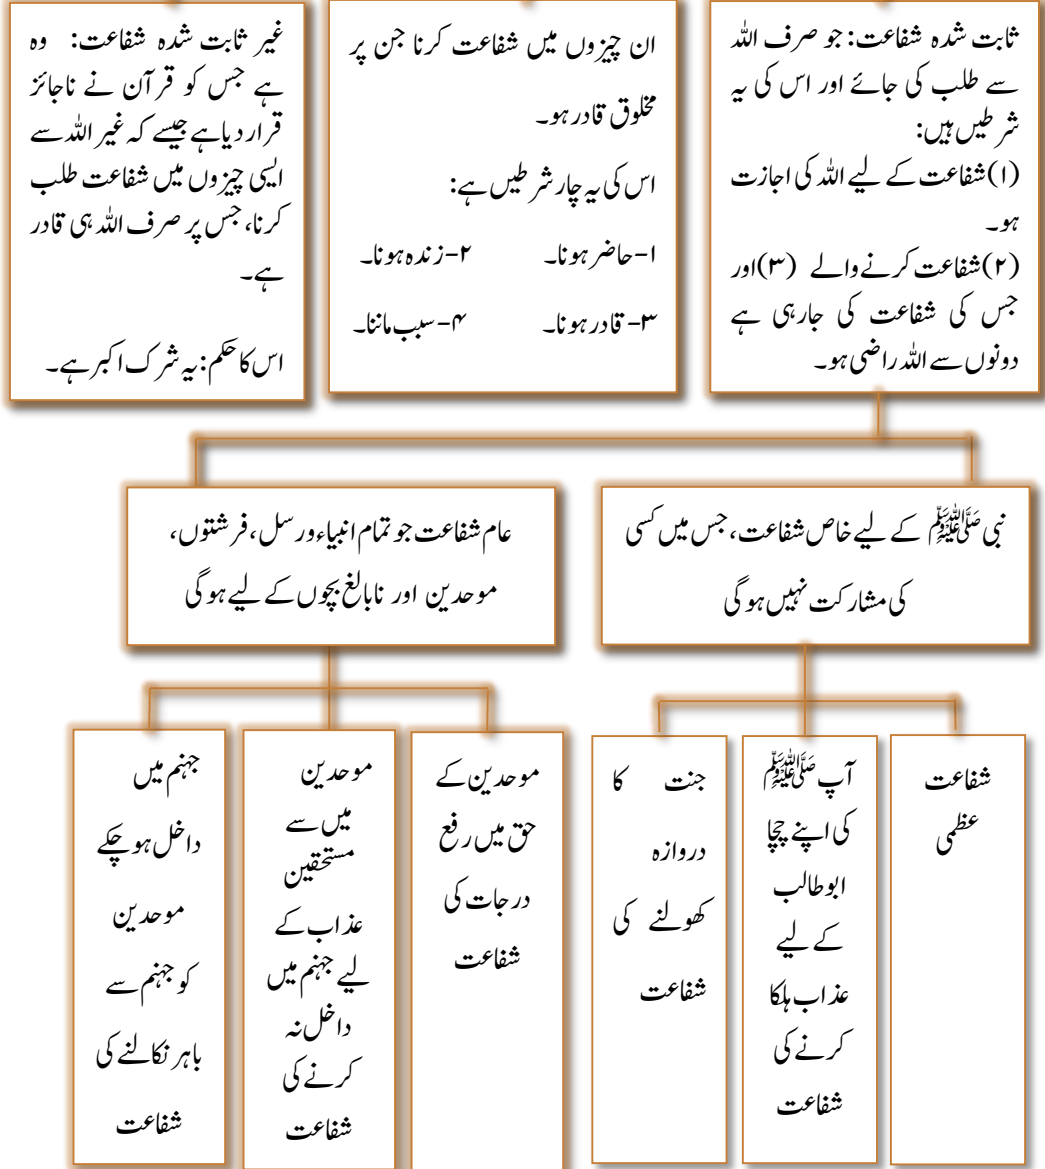 ثابت شدہ شفاعت: جو صرف اللہ
سے طلب کی جائے اور اس کی یہ
شرطیں ہیں:
(۱) شفاعت کے لیے اللہ کی اجازت
ہو۔
(۲) شفاعت کرنے والے (۳) اور
جس کی شفاعت کی جارہی ہے
دونوں سے اللہ راضی ہو۔
ان چیزوں میں شفاعت کرنا جن پر
مخلوق قادر ہو۔
اس کی یہ چار شرطیں ہے:
۱- حاضر ہونا۔ ۲- زندہ ہونا۔
۳- قادر ہونا۔ ۴- سبب ماننا۔
غیر ثابت شدہ شفاعت: وہ
ہے جس کو قرآن نے ناجائز
قرار دیا ہے جیسے کہ غیر اللہ سے
ایسی چیزوں میں شفاعت طلب
کرنا، جس پر صرف اللہ ہی قادر
ہے۔
اس کا حکم: یہ شرک اکبر ہے۔
نبی ﷺ کے لیے خاص شفاعت، جس میں کسی
کی مشارکت نہیں ہوگی
عام شفاعت جو تمام انبیاء ورسل، فرشتوں،
موحدین اور نابالغ بچوں کے لیے ہوگی
شفاعت
عظمی
آپ ﷺ
کی اپنے چچا
ابوطالب
کے لیے
عذاب ہلکا
کرنے کی
شفاعت
جنت کا
دروازہ
کھولنے کی
شفاعت
موحدین کے
حق میں رفع
درجات کی
شفاعت
موحدین
میں سے
مستحقین
عذاب کے
لیے جہنم میں
داخل نہ
کرنے کی
شفاعت
جہنم میں
داخل ہوچکے
موحدین
کو جہنم سے
باہر نکالنے کی
شفاعت